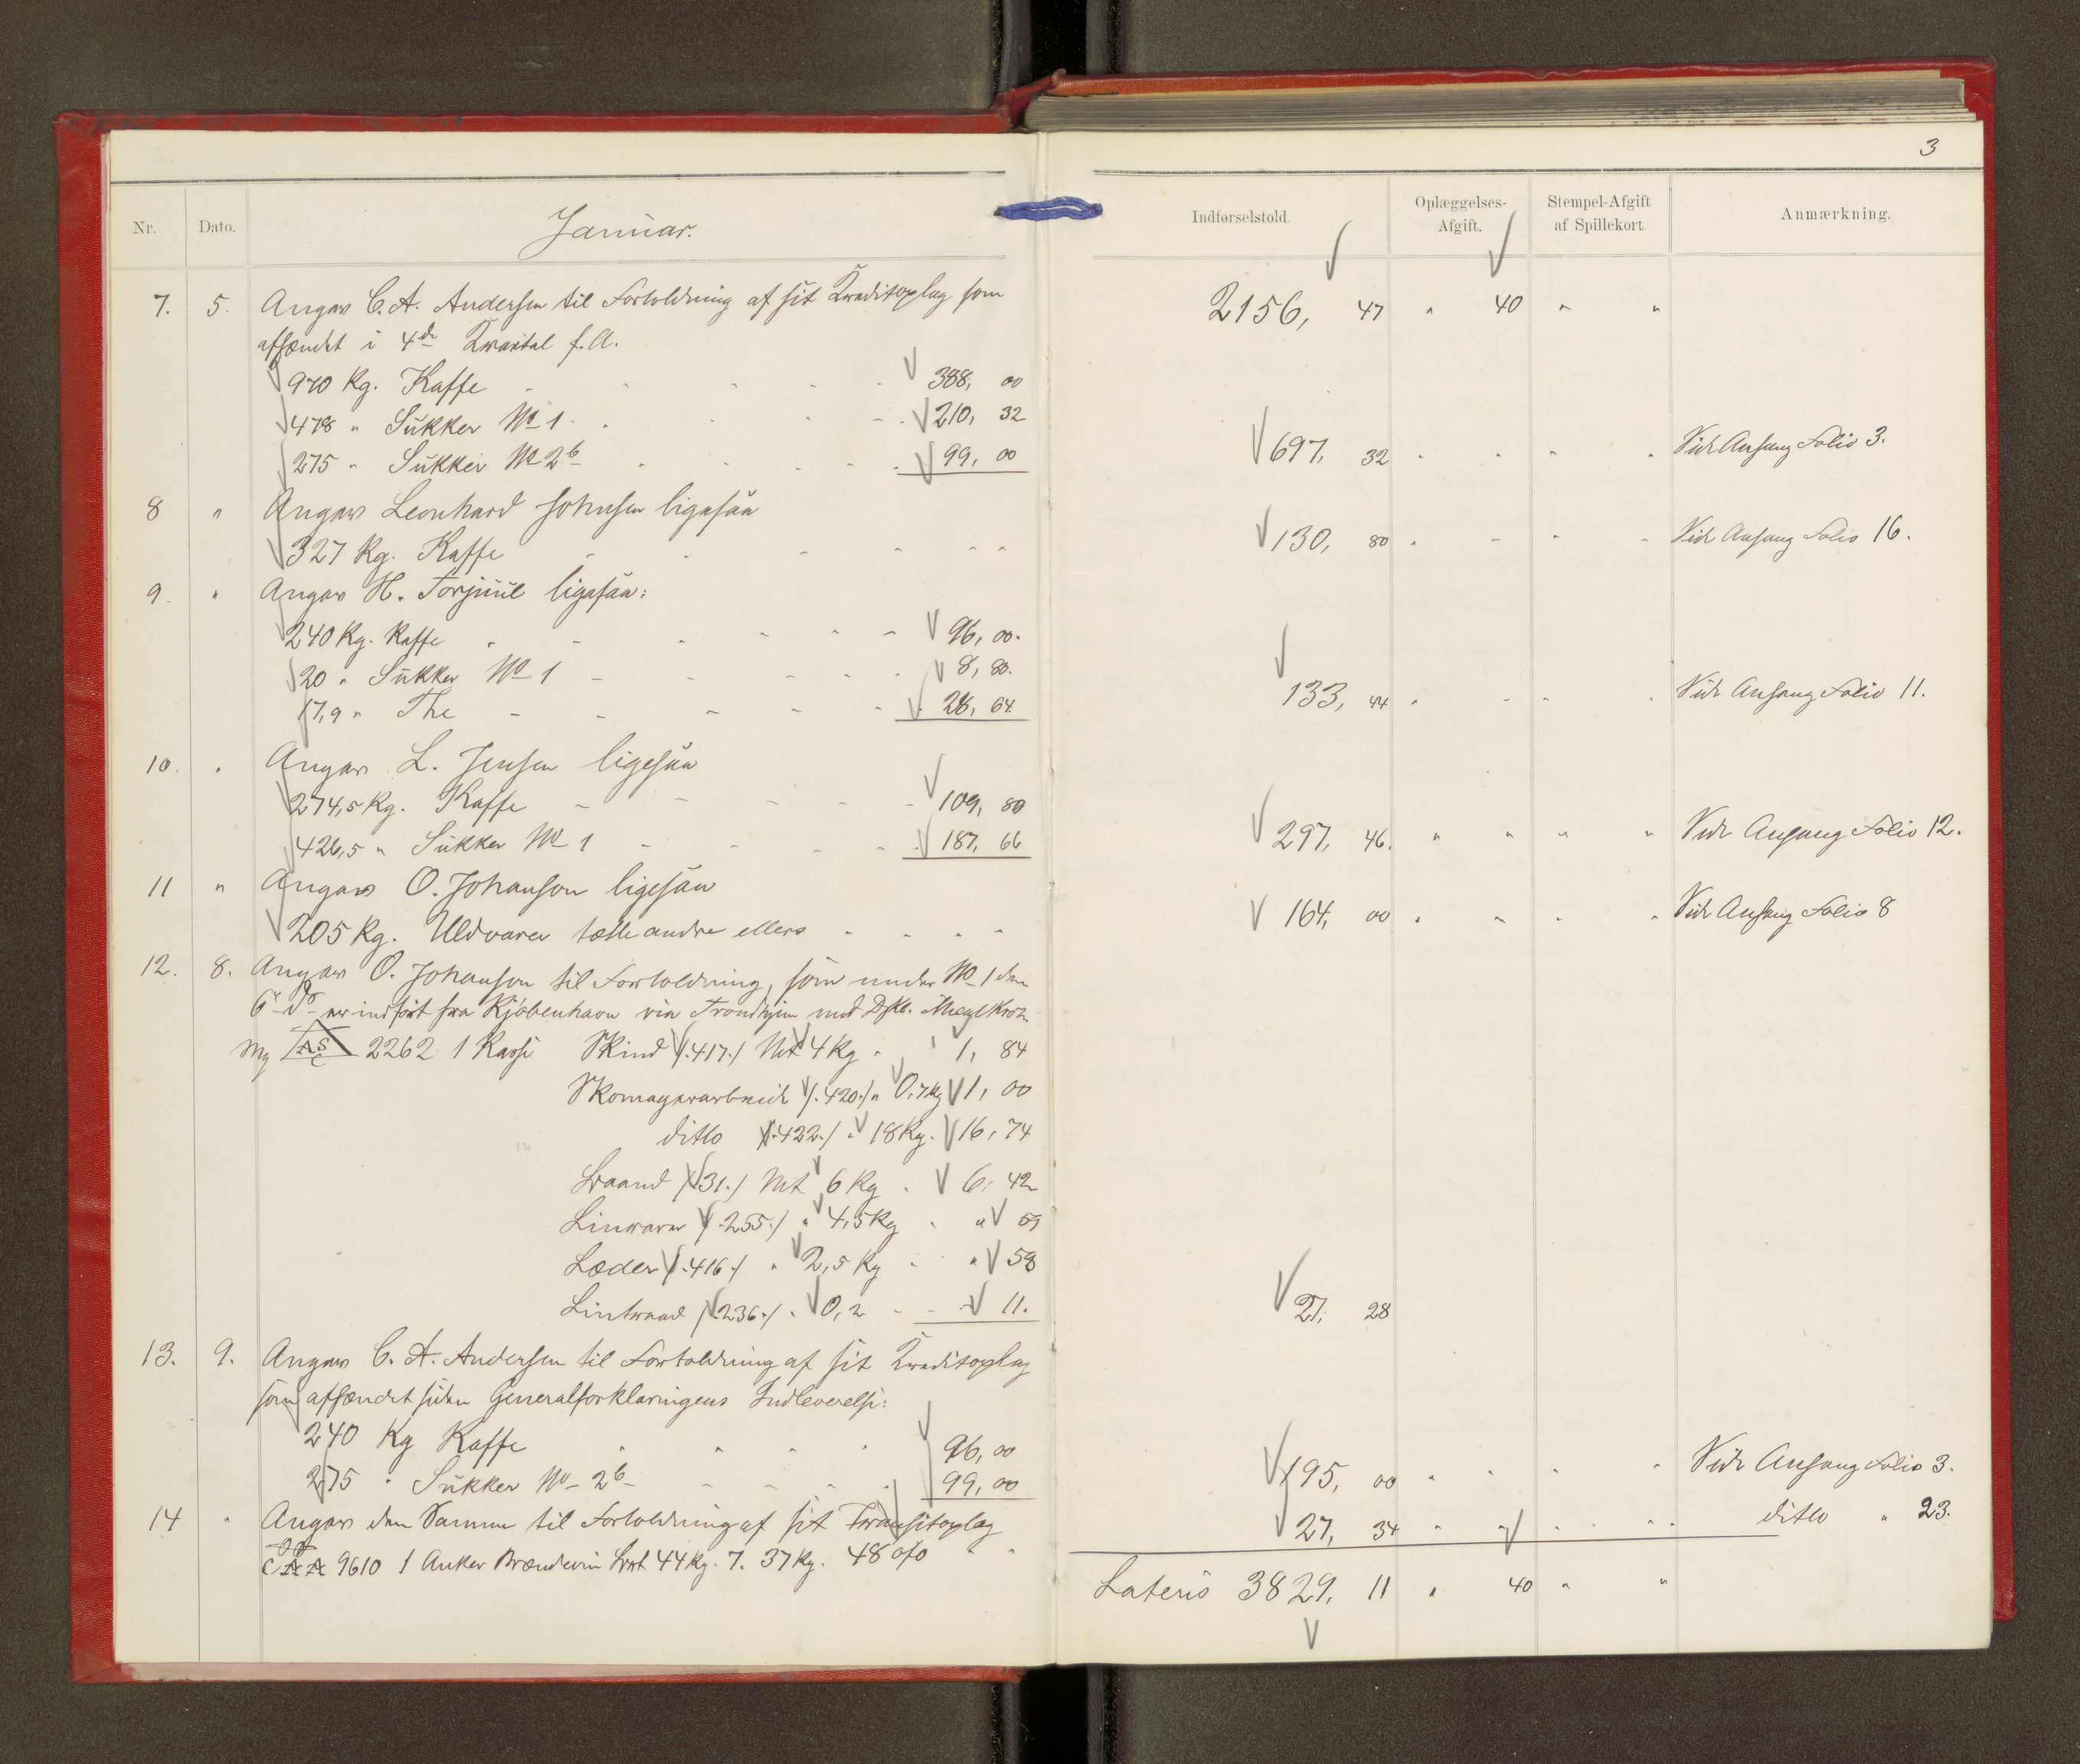 3
Nr. Dato. Januar. Indførselstold. Oplæggelses-Afgift. Stempel-Afgift af Spillekort. Anmærkning.
2156, 47 " 40 " "
7. 5. Angav C. A. Andersen til Fortoldning af sit Kreditoplag som
afsændt i 4de Kvartal f. A.
970 Kg. Kaffe 388, 00
478 " Sukker No 1 210, 32
275 " Sukker No 2b 99, 00 697, 32 Vide Anhang Folio 3.
8 " Angav Leonhard Johnsen ligesaa
327 Kg. Kaffe 130, 80 Vide Anhang Folio 16.
9. " Angav H. Torjuul ligesaa:
240 Kg. Kaffe 96, 00.
20 " Sukker No 1 8, 80.
17,9 " The 28, 64 133, 44 Vide Anhang Folio 11.
10. " Angav L. Jensen ligesaa
274,5 Kg. Kaffe 109, 80
426,5 " Sukker No 1 187, 66 297, 46. Vide Anhang Folio 12.
11 " Angav O. Johanson ligesaa
205 Kg. Uldvarer tætte andre ellers 164, 00 Vide Anhang Folio 8
12. 8. Angav O. Johanson til Fortoldning, som under No 1 den
6te ds er indført fra Kjøbenhavn via Trondhjem med Dskb.
AS 2262 1 Kasse Skind /:417:/ Nt 4 Kg " 1, 84
Skomagerarbeide /:420:/ " 0,7 Kg 1, 00
ditto /:422:/ " 18 Kg. 16, 74
Baand /:31:/ Nt 6 Kg " 6, 42
Linvarer /:255:/ " 4,5 Kg " " 59
Læder /:416:/ " 2,5 Kg " " 58
Lintraad /:236:/ " 0,2 11. 27, 28
13. 9. Angav C. A. Andersen til Fortoldning af sit Kreditoplag
som afsændt siden Generalforklaringens Indleverelse:
240 Kg Kaffe 96, 00
275 " Sukker No 2b 99, 00 195, 00 Vide Anhang Folio 3.
14 " Angav den Samme til Fortoldning af sit Transitoplag 27, 34 ditto " 23.
CAA 9610 1 Anker Brændevin Brt 44 Kg. T. 37 Kg. 48 o/o
Lateris 3829, 11 " 40 " "